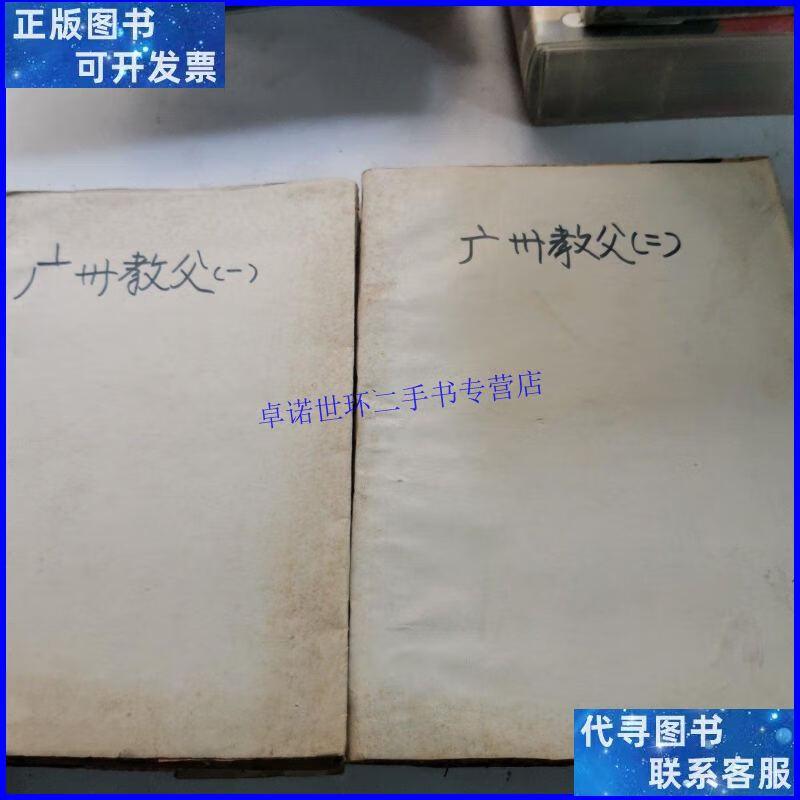 正版图书
可开发票
广州教父(一)
广州教父(二)
卓诺世环二手书专营店
代寻图书
联系客服